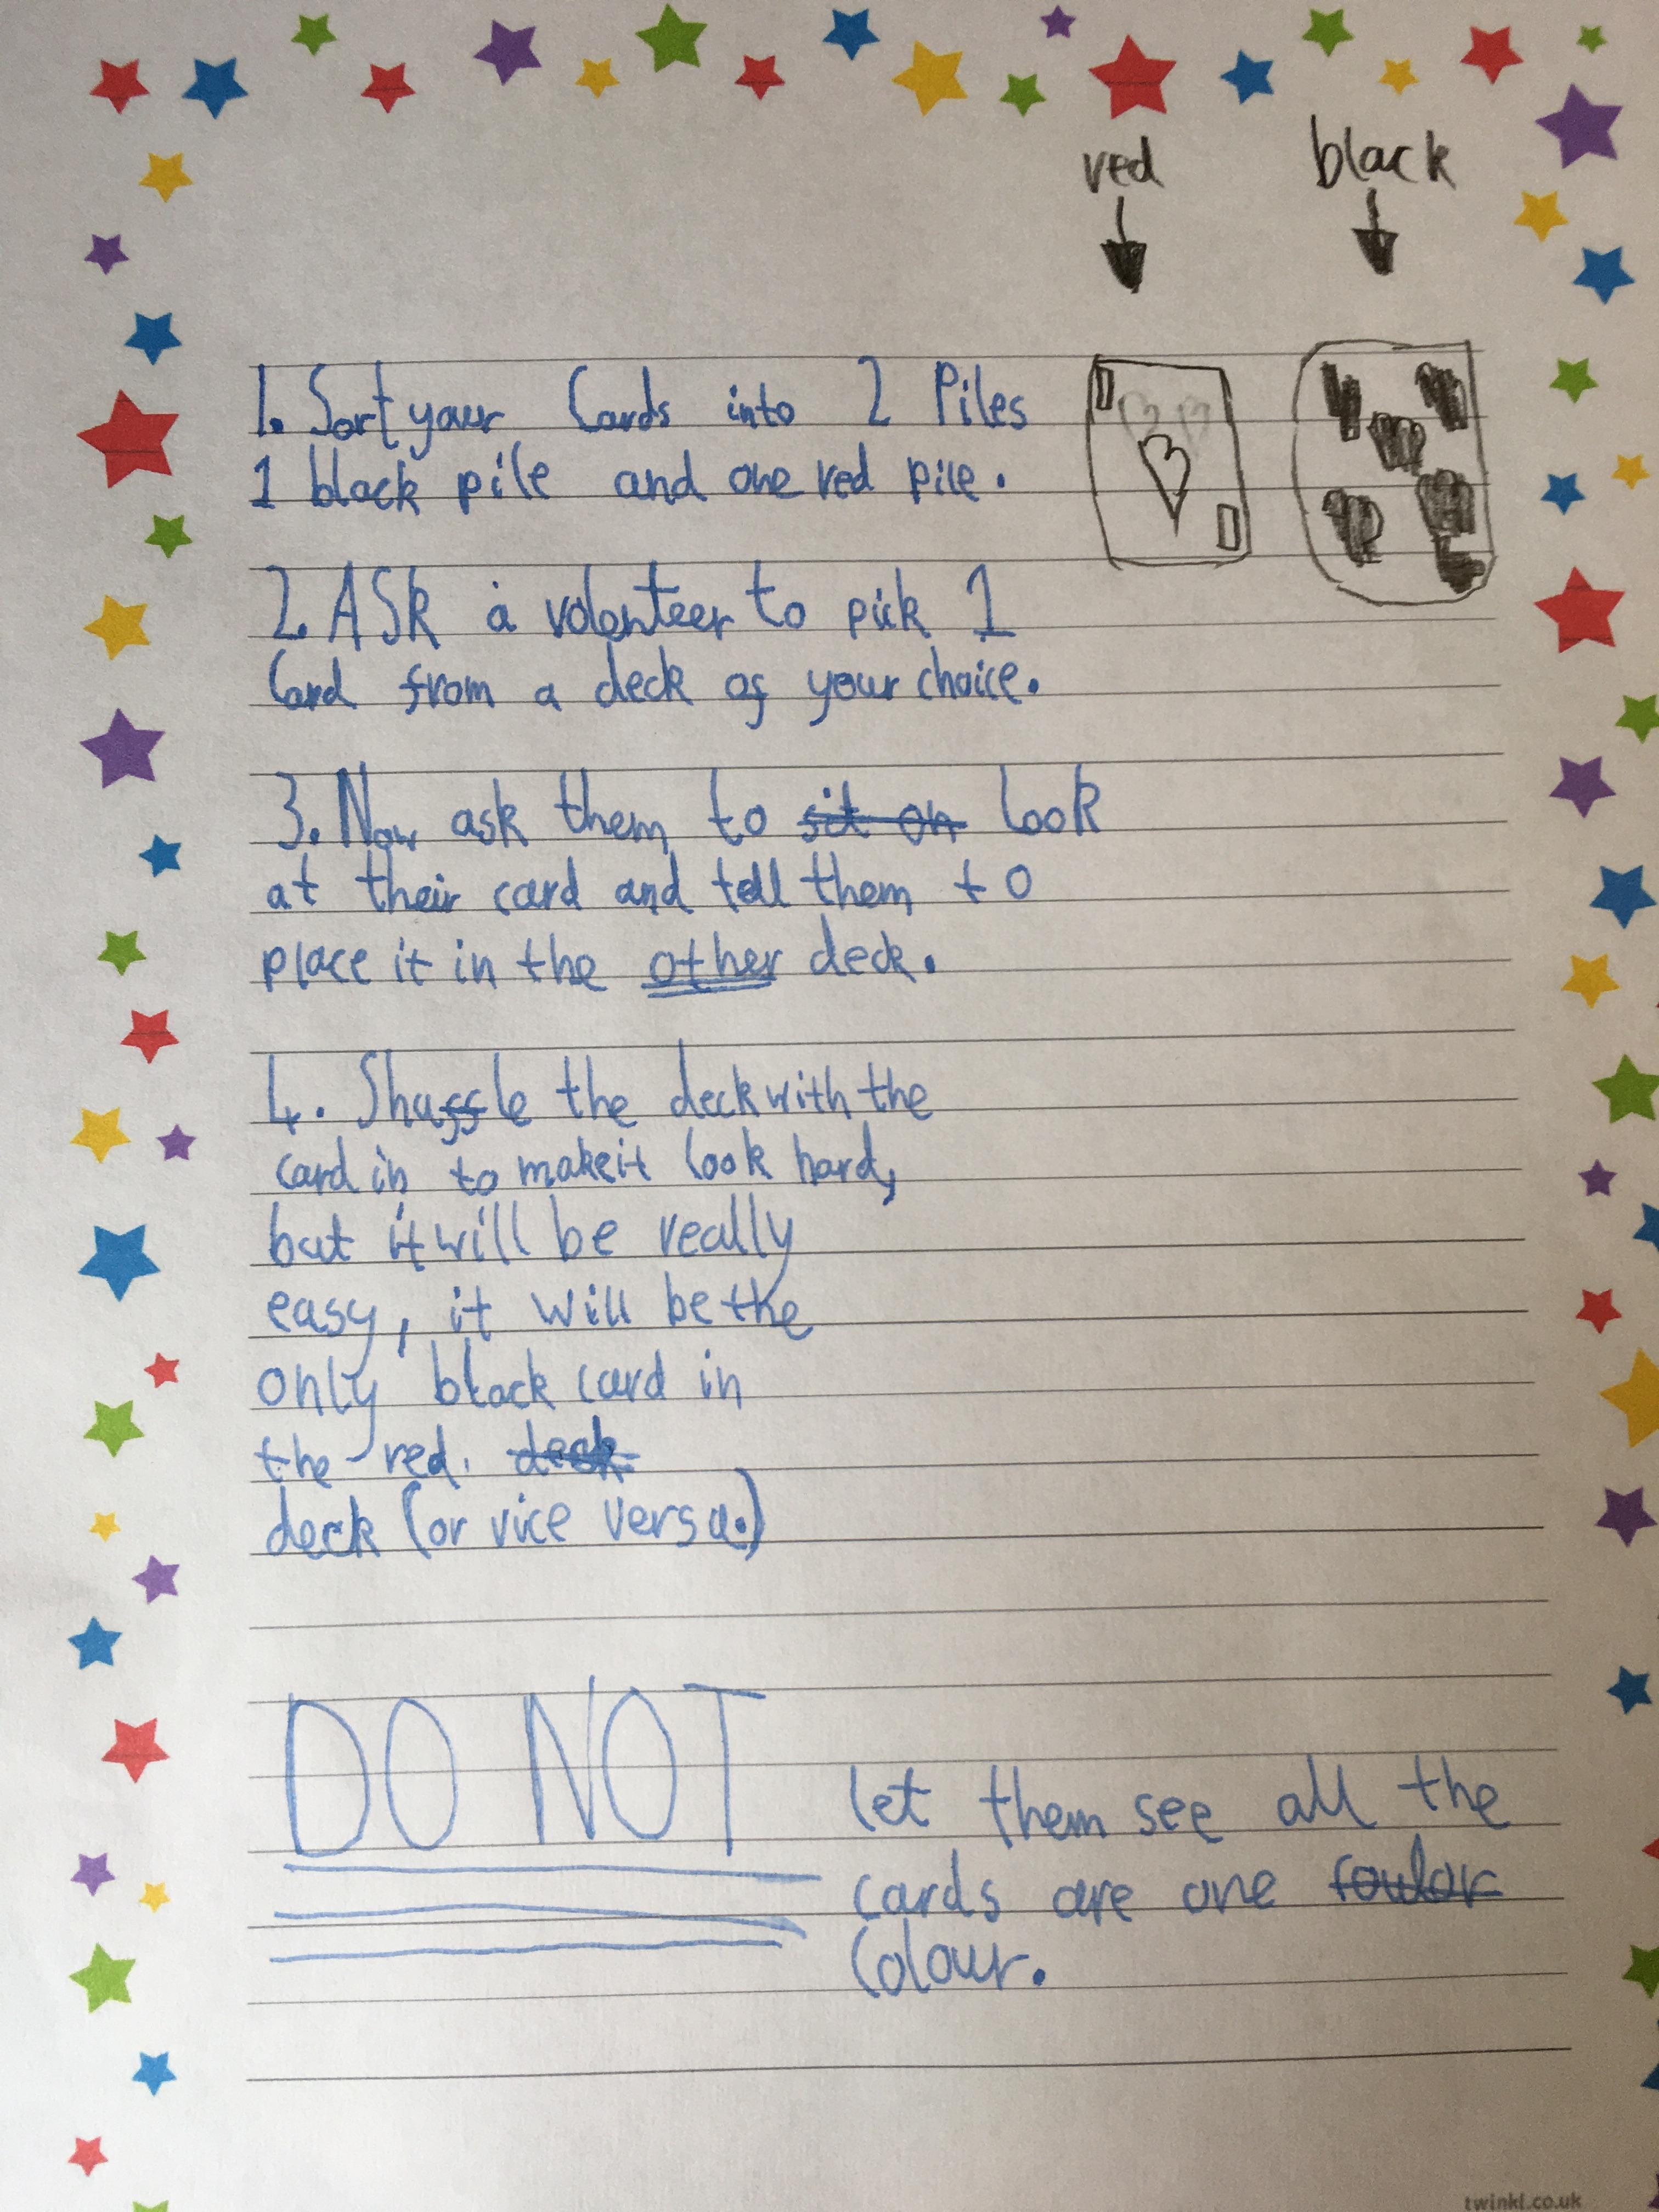 red black
1. Sort your Cards into 2 Piles
1 black pile and one red pile.
2. ASk a volenteer to pick 1
Card from a deck of your choice.
3. Now ask them to sit on look
at their card and tell them to
place it in the other deck.
4. Shuffle the deck with the
card in to make it look hard,
but it will be really
easy, it will be the
only black card in
the red. deck
deck (or vice versa.)
DO NOT let them see all the
cards are one coulor
Colour.
twinkl.co.uk